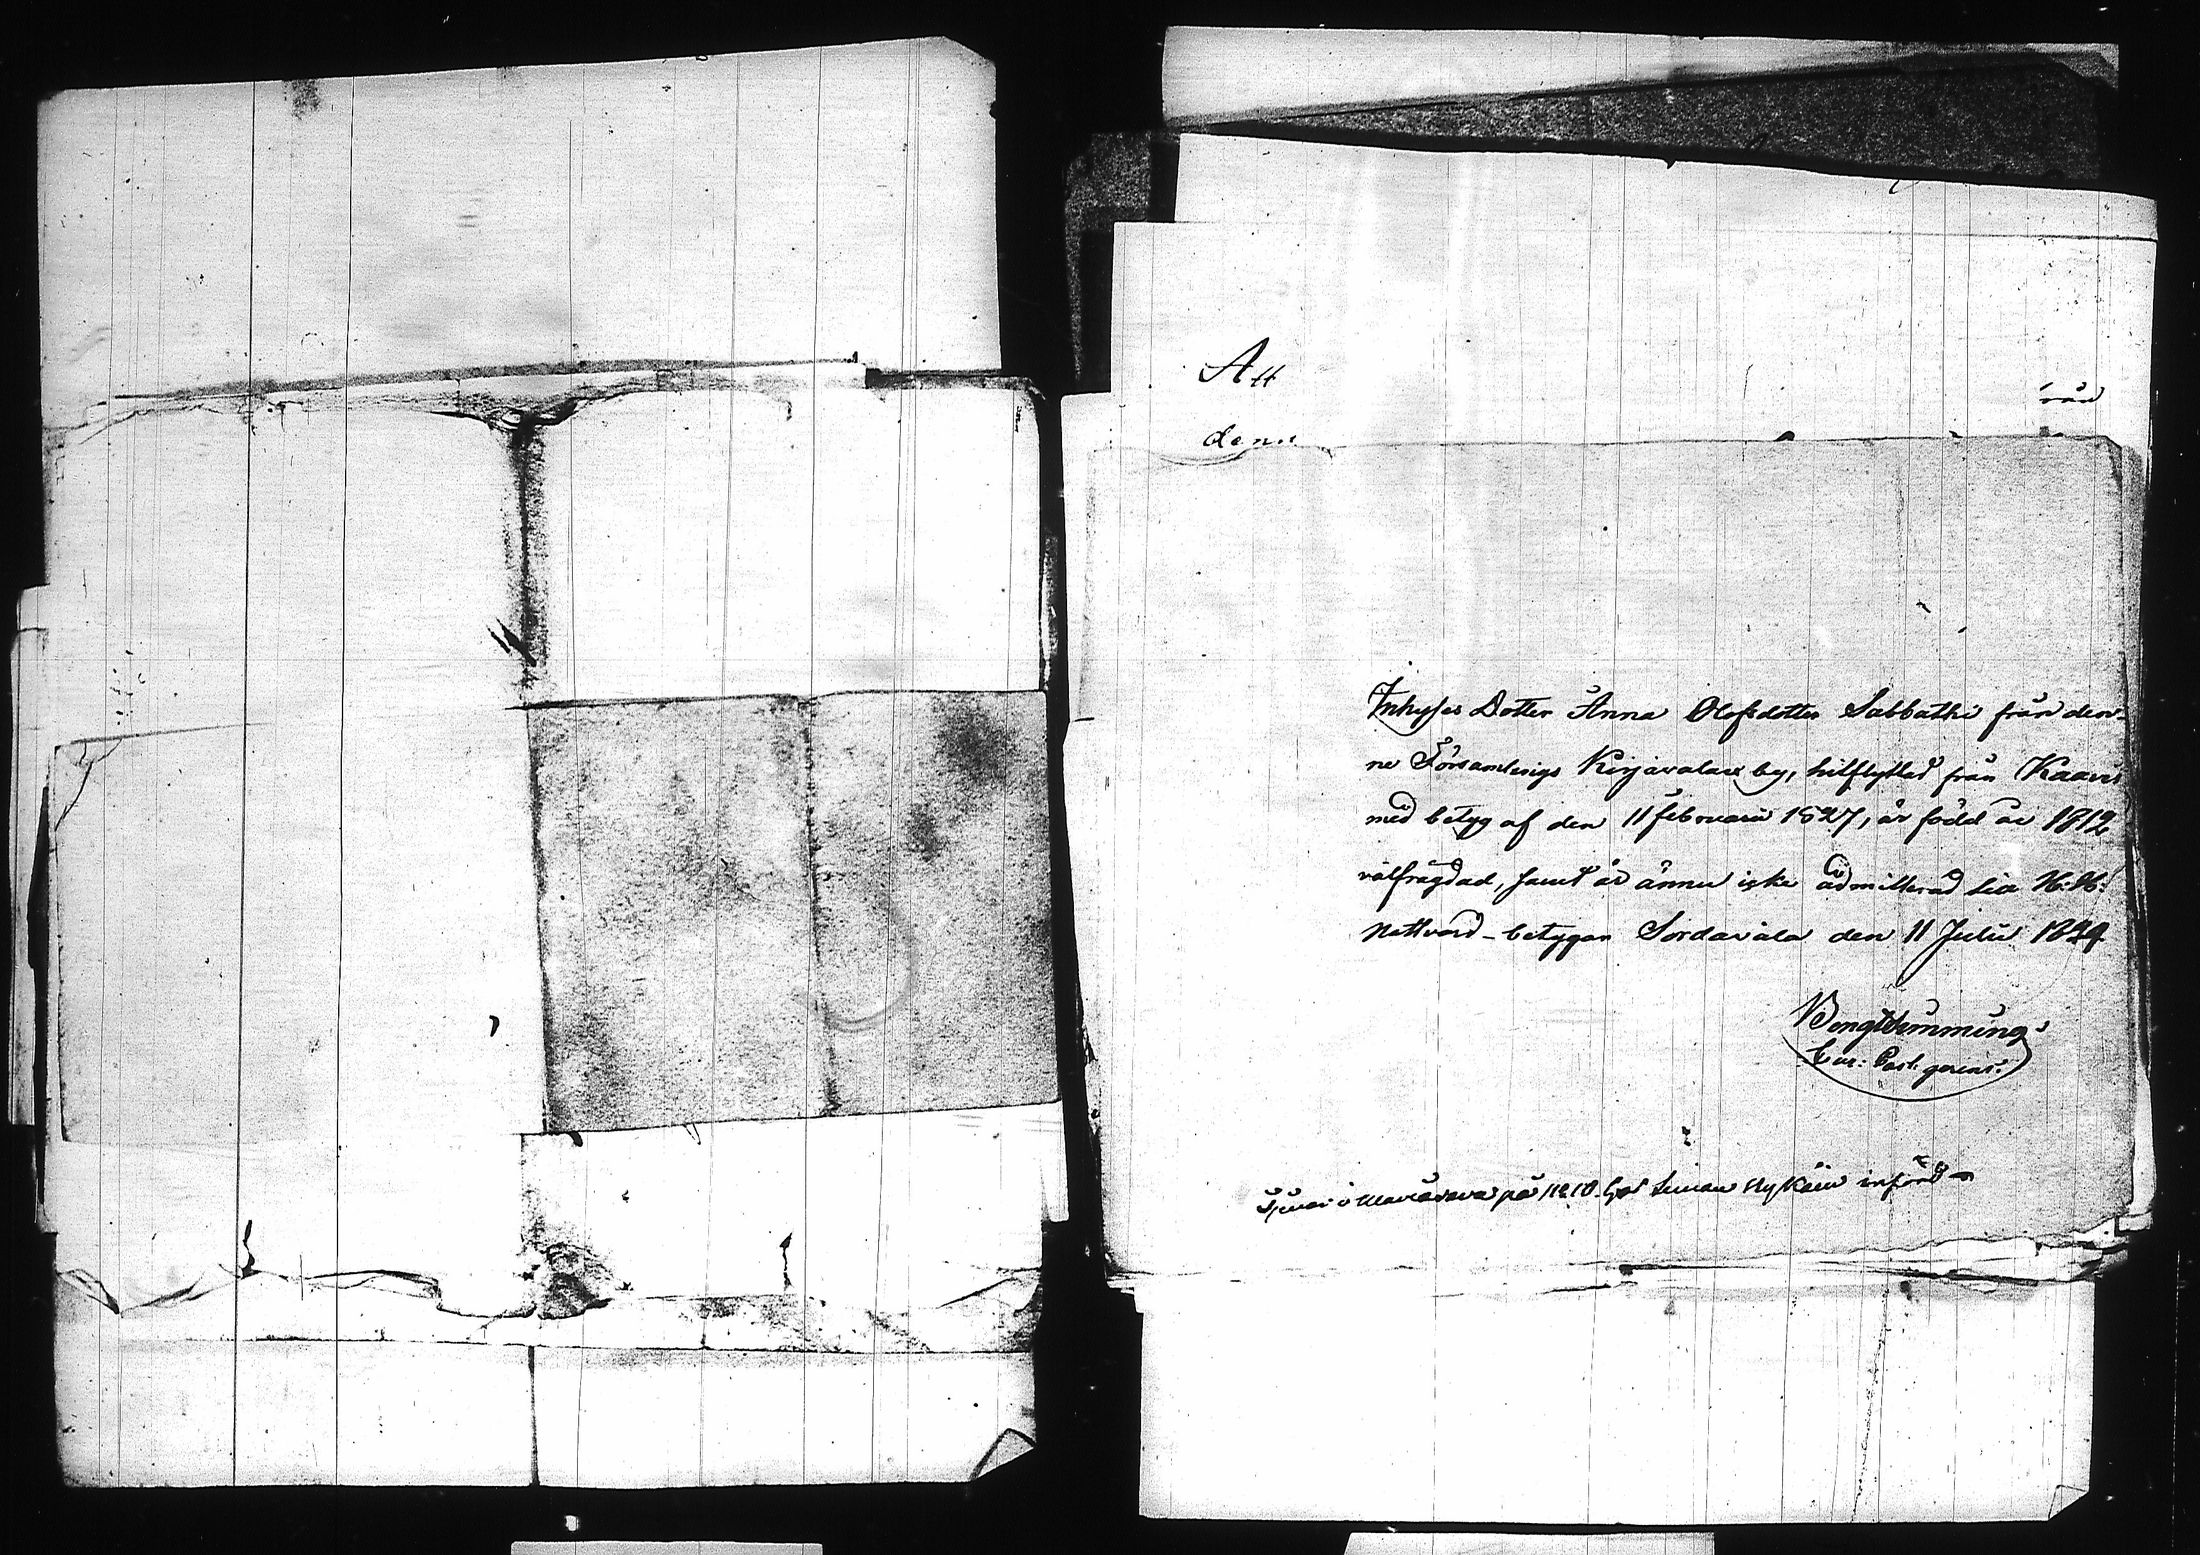 Att
rån
denn
Inhyses Dotter Anna Olofsdotter Sabbathi från den-
ne Församlings Kirjavalax by, hitflyttad från Kaavi
med betyg af den 11 februarii 1827, är född år 1812
välfrägdad, samt är ännu icke admitterad till H: H:
Nattvard - betygar Sordavala den 11 Julii 1829
Bengt
Cur: Past: gerens.
Tjenar i på No 10 hos Simon Nykäin införd